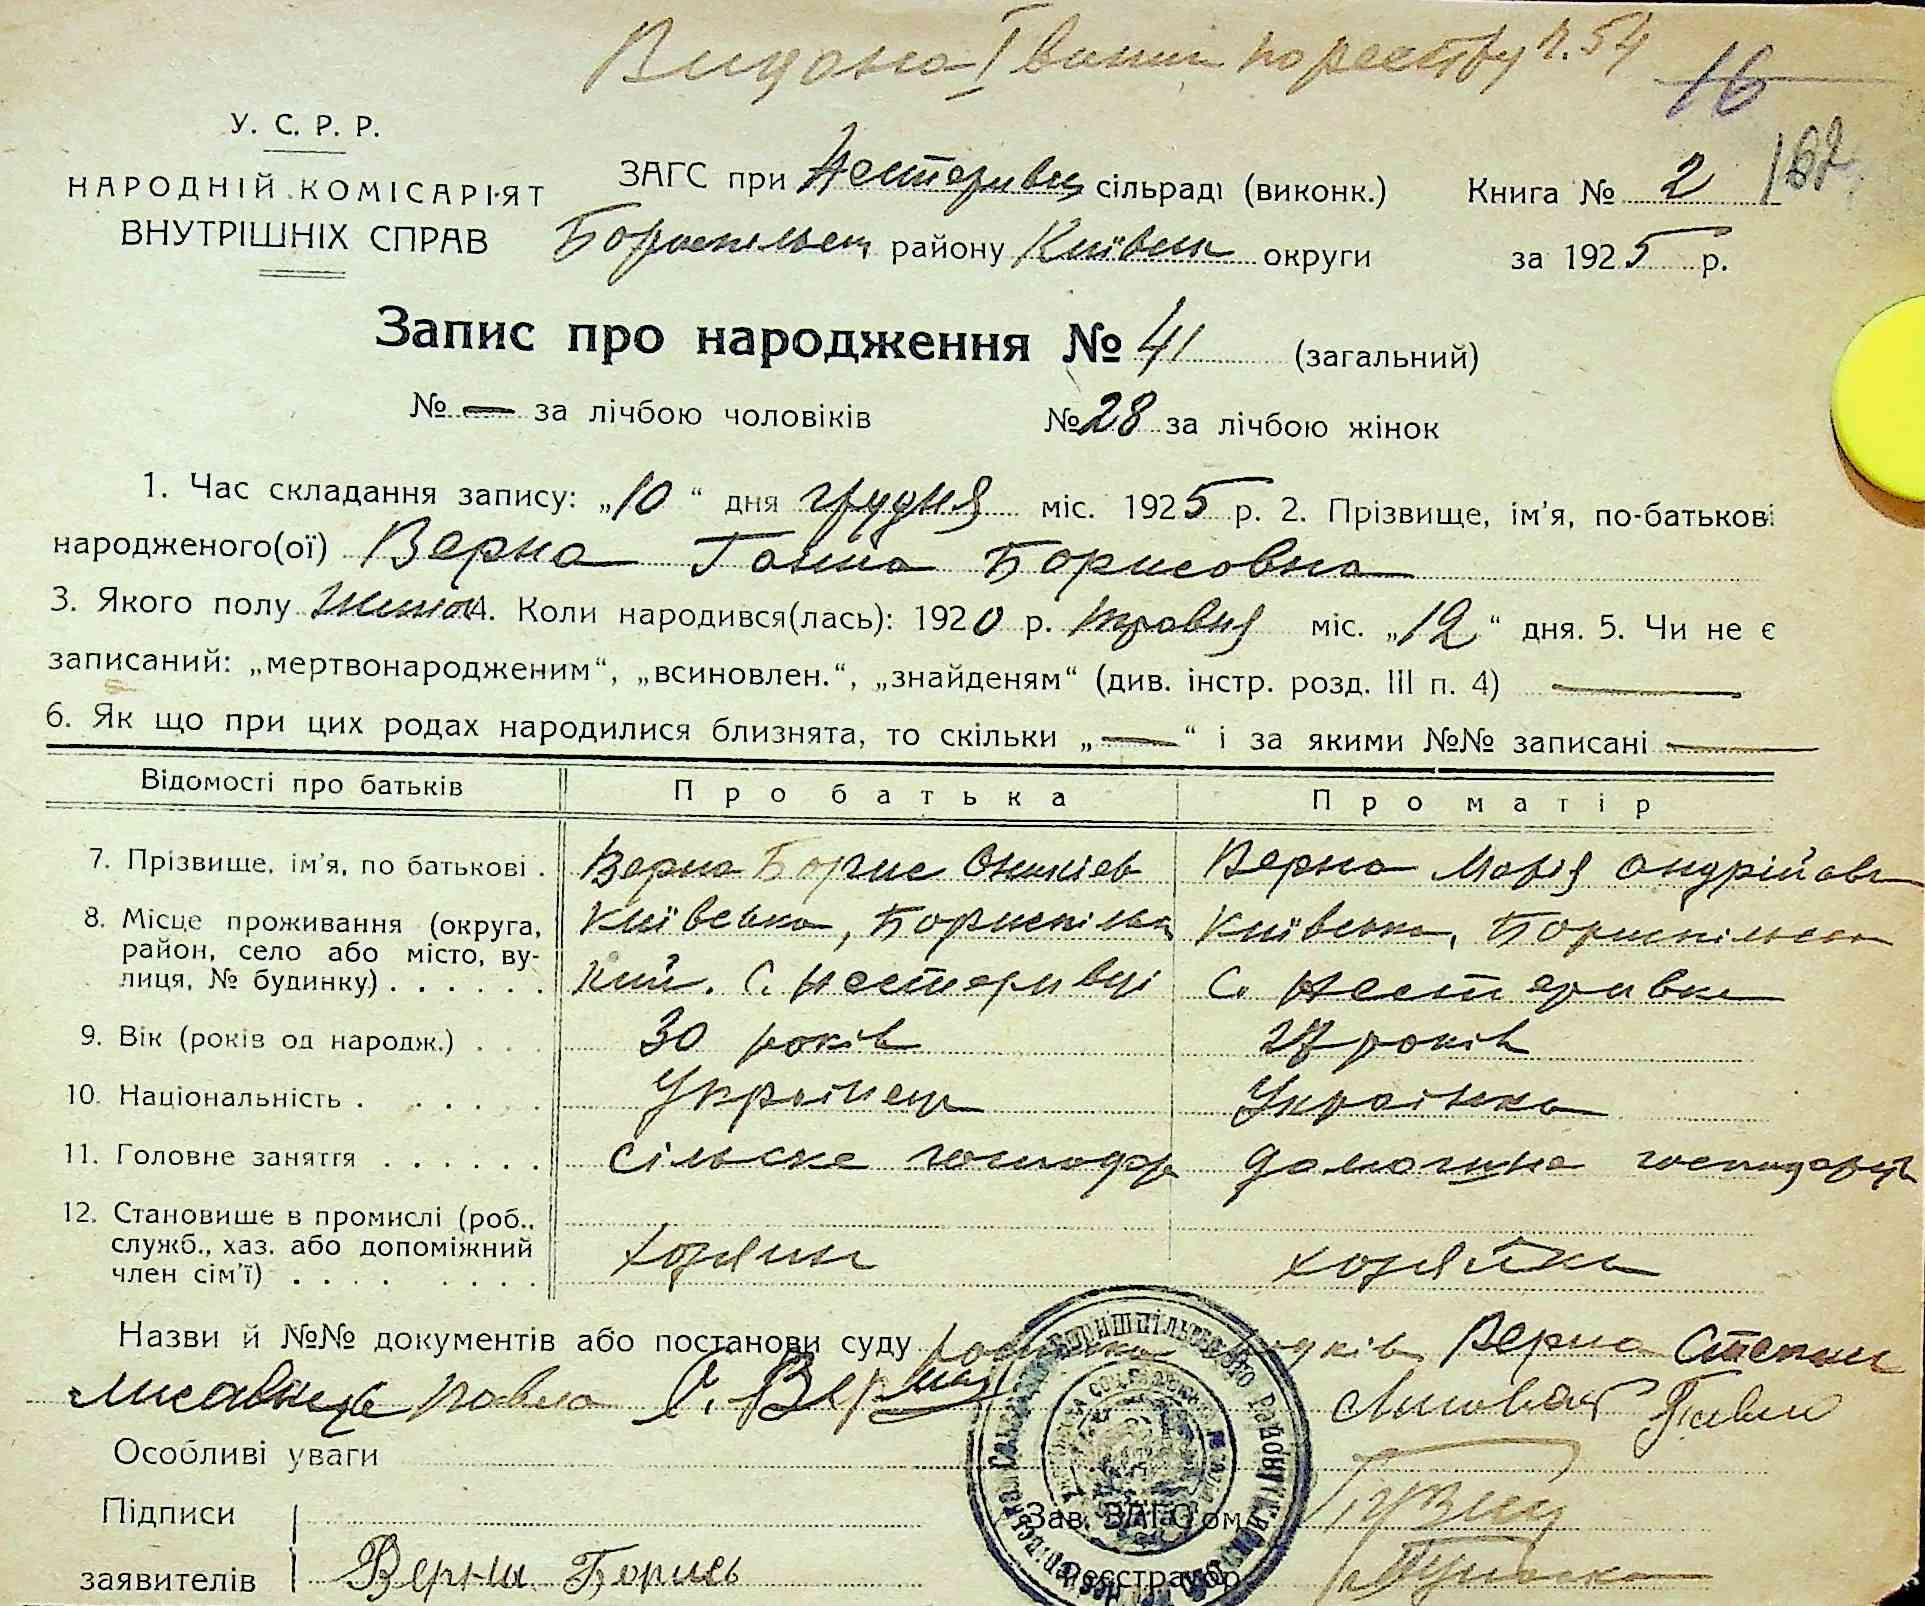 Видано І по реєстру ч. 54
16
162
У. С. Р. Р.
НАРОДНІЙ КОМІСАРІЯТ
ВНУТРІШНІХ СПРАВ
ЗАГС при Нестерівці сільраді (виконк.)
Бориспільськ району Київськ округи
Книга № 2
за 1925 р.
Запис про народження № 41 (загальний)
№ — за лічбою чоловіків № 28 за лічбою жінок
1. Час складання запису: „10“ дня грудня міс. 1925 р. 2. Прізвище, ім'я, по-батькові
народженого(ої) Верна Ганна Борисовна
3. Якого полу жіноч 4. Коли народився(лась): 1920 р. травня міс. „12“ дня. 5. Чи не є
записаний: „мертвонародженим“, „всиновлен.“, „знайденям“ (див. інстр. розд. III п. 4) —
6. Як що при цих родах народилися близнята, то скільки „—“ і за якими №№ записані —
Відомості про батьків Про батька Про матір
7. Прізвище, ім'я, по батькові . Верна Борис Оникієв Верна Марія Андрійовн
8. Місце проживання (округа, Київська, Бориспільсь Київська, Бориспільськ
район, село або місто, ву-
лиця, № будинку) . . . . . . кий. С. Нестерівці С. Нестерівк
9. Вік (років од народж.) . . . 30 років 27 років
10. Національність . . . . . Українець Українка
11. Головне заняття . . . . . . сільське господар домашнє господарств
12. Становише в промислі (роб.,
служб., хаз. або допоміжний
член сім'ї) . . . . . . . . хозяин хозяйка
Назви й №№ документів або постанови суду свідків Верна Степан
Павла С. Верна
Павло
Особливі уваги
Підписи
заявителів Верна Борись
Зав. ЗАГС'ом
Реєстратор